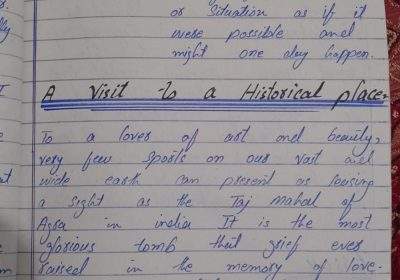 or Situation as if it
were possible and
might one day happen.
A Visit to a Historical place.
To a lover of art and beauty,
very few Sports on our vast and
wide earth can present as rousing
a sight as the Taj Mahal of
Agra in india It is the most
glorious tomb that grief ever
raised in the memory of love.